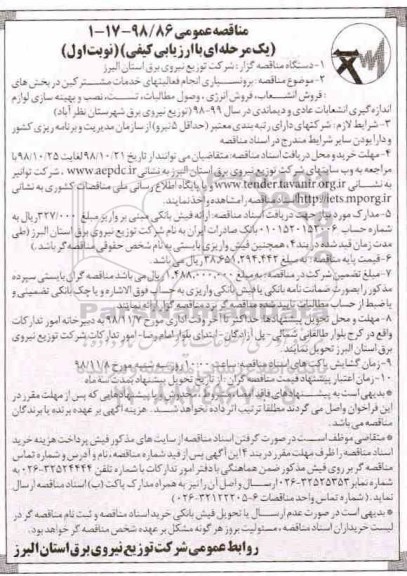 مناقصه عمومی ۹۸/۸۶-۱۷-۱
(یک مرحله‌ای با ارزیابی کیفی) (نوبت اول)
۱- دستگاه مناقصه گزار: شرکت توزیع نیروی برق استان البرز
۲- موضوع مناقصه: برونسپاری انجام فعالیتهای خدمات مشترکین در بخش های
: فروش انشعاب، فروش انرژی، وصول مطالبات، تست، نصب و بهینه سازی لوازم
اندازه گیری انشعابات عادی و دیماندی در سال ۹۹-۹۸ (توزیع نیروی برق شهرستان نظرآباد)
۳- شرایط لازم: شرکتهای دارای رتبه بندی معتبر (حداقل ۵ نیرو) از سازمان مدیریت و برنامه ریزی کشور
و دارا بودن سایر شرایط مندرج در اسناد مناقصه
۴- مهلت خرید و محل دریافت اسناد مناقصه: متقاضیان می توانند از تاریخ ۹۸/۱۰/۲۱ لغایت ۹۸/۱۰/۲۵ با
مراجعه به وب سایتهای شرکت توزیع نیروی برق استان البرز به نشانی www.aepdc.ir ، شرکت توانیر
به نشانی www.tender.tavanir.org.ir و یا پایگاه اطلاع رسانی ملی مناقصات کشوری به نشانی
http://iets.mporg.ir اسناد مناقصه را مشاهده و اخذ نمایند.
۵- مدارک مورد نیاز جهت دریافت اسناد مناقصه: ارائه فیش بانکی مبنی بر واریز مبلغ ۳۲۷/۰۰۰ ریال به
شماره حساب ۰۱۰۱۵۲۰۱۵۳۰۰۶ بانک صادرات ایران به نام شرکت توزیع نیروی برق استان البرز (طی
مدت زمان قید شده در بند ۴، همچنین فیش واریزی بایستی به نام شخص حقوقی مناقصه گر باشد.)
۶- قیمت پایه مناقصه: به مبلغ ۳۸,۶۵۱,۲۹۴,۴۴۲ ریال می باشد
۷- مبلغ تضمین شرکت در مناقصه: به مبلغ ۱,۴۸۸,۰۰۰,۰۰۰ ریال می باشد مناقصه گران بایستی سپرده
مذکور را بصورت ضمانت نامه بانکی یا فیش بانکی واریزی به حساب فوق الاشاره و یا چک بانکی تضمینی و
یا ضبط از حساب مطالبات تایید شده مناقصه گر نزد مناقصه گزار ارائه نمایند
۸- مهلت و محل تحویل پیشنهادها: حداکثر تا آخر وقت اداری مورخ ۹۸/۱۱/۷ به دبیرخانه امور تدارکات
واقع در کرج بلوار طالقانی شمالی- پل آزادگان- ابتدای بلوار امام رضا- امور تدارکات شرکت توزیع نیروی
برق استان البرز تحویل نمایند.
۹- زمان گشایش پاکت های اسناد مناقصه: ساعت ۱۰:۰۰ روز سه شنبه مورخ ۹۸/۱۱/۸
۱۰- زمان اعتبار پیشنهاد قیمت مناقصه گران: از تاریخ تحویل پیشنهاد بمدت سه ماه
* بدیهی است به پیشنهادهای فاقد امضاء، مشروط، مخدوش و پیشنهادهایی که پس از مهلت مقرر در
این فراخوان واصل می گردند مطلقا ترتیب اثر داده نخواهد شد. هزینه آگهی بر عهده برنده یا برندگان
مناقصه می باشد.
* متقاضی موظف است در صورت گرفتن اسناد مناقصه از سایت های مذکور فیش پرداخت هزینه خرید
اسناد مناقصه را ظرف مهلت مقرر در بند ۴ این آگهی پس از قید شماره مناقصه، نام و آدرس و شماره تماس
مناقصه گر بر روی فیش مذکور ضمن هماهنگی با دفتر امور تدارکات با شماره تلفن ۳۲۵۲۴۴۴۴-۰۲۶ به
شماره نمابر ۳۲۵۲۵۳۵۳-۰۲۶ ارسال و اصل آن را نیز به همراه مدارک پاکت (ب) اسناد مناقصه ارسال
نماید. (شماره تماس واحد مناقصات ۶-۳۲۱۲۲۲۰۵-۰۲۶)
* بدیهی است در صورت عدم ارسال یا تحویل فیش بانکی خرید اسناد مناقصه و ثبت نام مناقصه گر در
لیست خریداران اسناد مناقصه، مسئولیت بروز هر گونه مشکل بر عهده شخص مناقصه گر خواهد بود.
روابط عمومی شرکت توزیع نیروی برق استان البرز